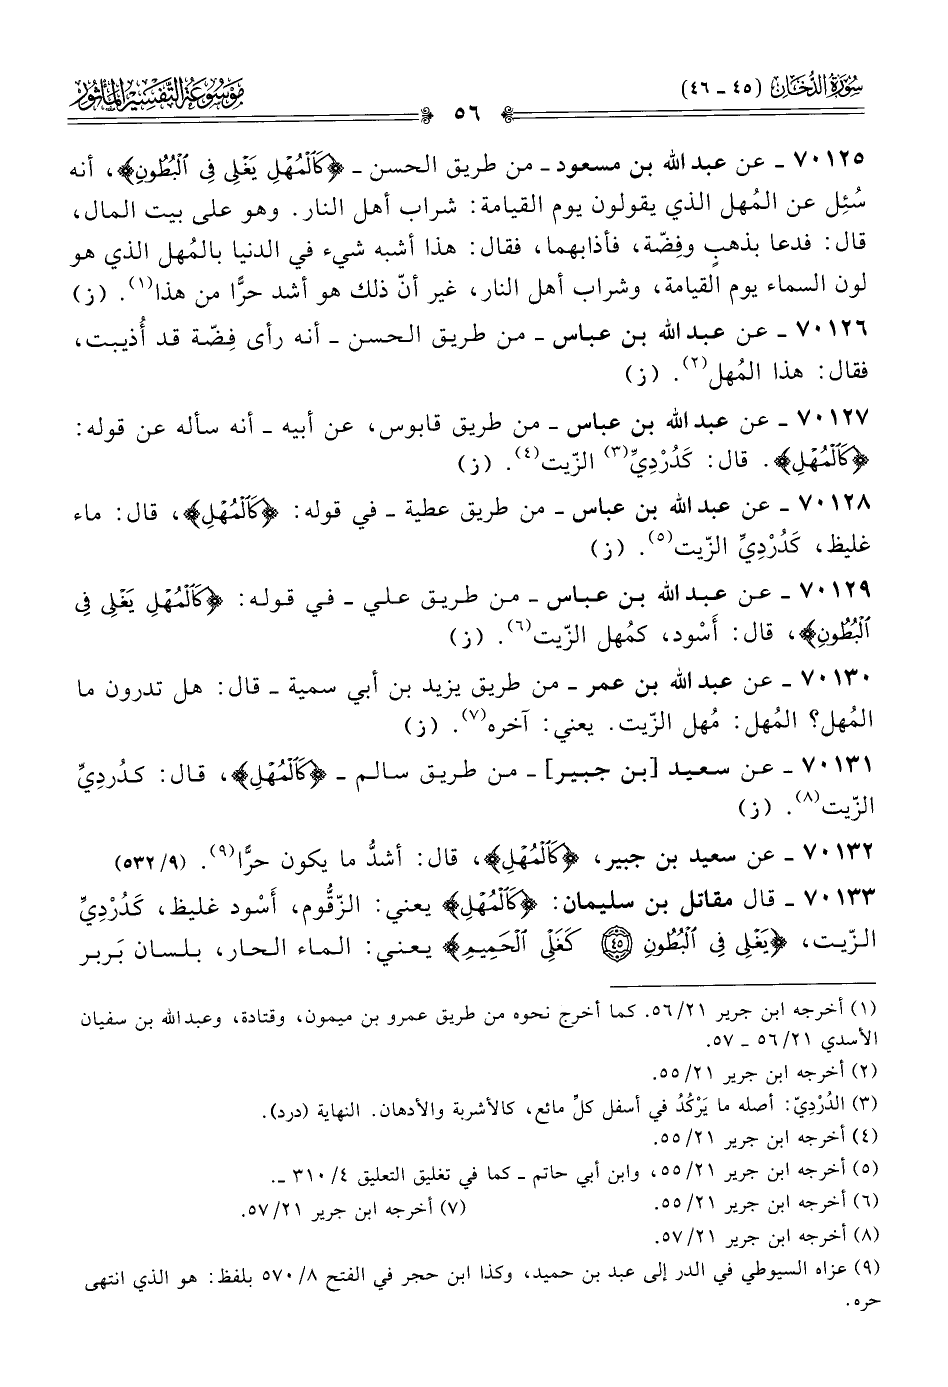 سُورَةُ الدُّخَانِ (٤٥ - ٤٦)
٥٦
مَوْسُوعَةُ التَّفْسِيْرِ المَأْثُورِ
٧٠١٢٥ - عن عبد الله بن مسعود - من طريق الحسن - ﴿كَٱلۡمُهۡلِ يَغۡلِى فِى ٱلۡبُطُونِ﴾، أنه
سُئِل عن المُهل الذي يقولون يوم القيامة: شراب أهل النار. وهو على بيت المال،
قال: فدعا بذهبٍ وفِضّة، فأذابهما، فقال: هذا أشبه شيء في الدنيا بالمُهل الذي هو
لون السماء يوم القيامة، وشراب أهل النار، غير أنّ ذلك هو أشد حرًّا من هذا(١). (ز)
٧٠١٢٦ - عن عبد الله بن عباس - من طريق الحسن - أنه رأى فِضّة قد أُذيبت،
فقال: هذا المُهل(٢). (ز)
٧٠١٢٧ - عن عبد الله بن عباس - من طريق قابوس، عن أبيه - أنه سأله عن قوله:
﴿كَٱلۡمُهۡلِ﴾. قال: كَدُرْدِيِّ(٣) الزّيت(٤). (ز)
٧٠١٢٨ - عن عبد الله بن عباس - من طريق عطية - في قوله: ﴿كَٱلۡمُهۡلِ﴾، قال: ماء
غليظ، كَدُرْدِيِّ الزّيت(٥). (ز)
٧٠١٢٩ - عن عبد الله بن عباس - من طريق علي - في قوله: ﴿كَٱلۡمُهۡلِ يَغۡلِى فِى
ٱلۡبُطُونِ﴾، قال: أَسْود، كمُهل الزّيت(٦). (ز)
٧٠١٣٠ - عن عبد الله بن عمر - من طريق يزيد بن أبي سمية - قال: هل تدرون ما
المُهل؟ المُهل: مُهل الزّيت. يعني: آخره(٧). (ز)
٧٠١٣١ - عن سعيد [بن جبير] - من طريق سالم - ﴿كَٱلۡمُهۡلِ﴾، قال: كدُرديِّ
الزّيت(٨). (ز)
٧٠١٣٢ - عن سعيد بن جبير، ﴿كَٱلۡمُهۡلِ﴾، قال: أشدُّ ما يكون حرًّا(٩). (٥٣٢/٩)
٧٠١٣٣ - قال مقاتل بن سليمان: ﴿كَٱلۡمُهۡلِ﴾ يعني: الزّقُّوم، أَسْود غليظ، كَدُرْدِيِّ
الزّيت، ﴿يَغۡلِى فِى ٱلۡبُطُونِ ٤٥ كَغَلۡىِ ٱلۡحَمِيمِ﴾ يعني: الماء الحار، بلسان بَربر
(١) أخرجه ابن جرير ٥٦/٢١. كما أخرج نحوه من طريق عمرو بن ميمون، وقتادة، وعبد الله بن سفيان
الأسدي ٥٦/٢١ - ٥٧.
(٢) أخرجه ابن جرير ٥٥/٢١.
(٣) الدُّرْدِيّ: أصله ما يَرْكُدُ في أسفل كلِّ مائع، كالأشربة والأدهان. النهاية (درد).
(٤) أخرجه ابن جرير ٥٥/٢١.
(٥) أخرجه ابن جرير ٥٥/٢١، وابن أبي حاتم - كما في تغليق التعليق ٣١٠/٤ -.
(٦) أخرجه ابن جرير ٥٥/٢١. (٧) أخرجه ابن جرير ٥٧/٢١.
(٨) أخرجه ابن جرير ٥٧/٢١.
(٩) عزاه السيوطي في الدر إلى عبد بن حميد، وكذا ابن حجر في الفتح ٥٧٠/٨ بلفظ: هو الذي انتهى
حره.